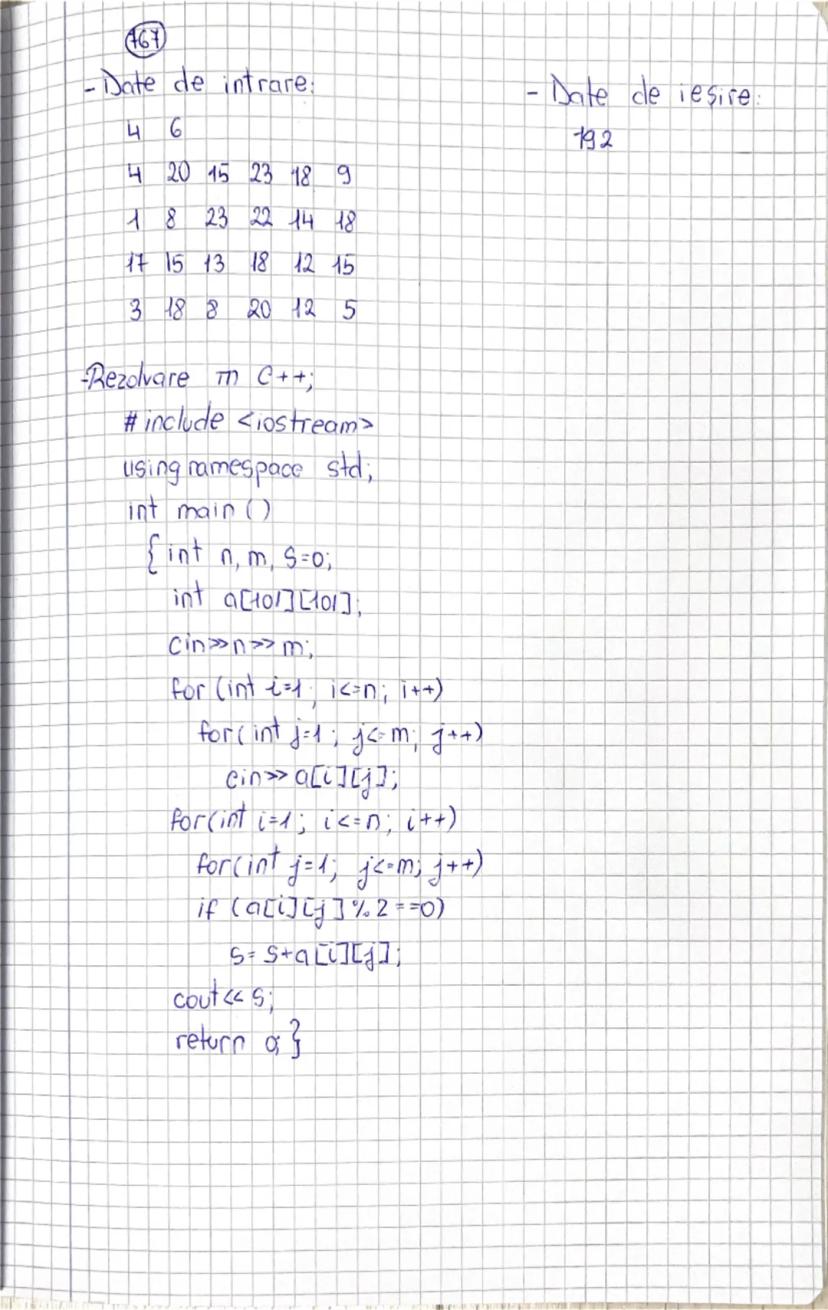 767
- Date de intrare:
4 6
4 20 15 23 18 9
1 8 23 22 14 18
17 15 13 18 12 15
3 18 8 20 12 5
- Date de iesire:
192
-Rezolvare în C++;
# include <iostream>
using namespace std;
int main ()
{ int n, m, S=0;
int a[101][101];
cin>>n>>m;
for (int i=1; i<=n; i++)
for(int j=1; j<=m; j++)
cin>> a[i][j];
for(int i=1; i<=n; i++)
for(int j=1; j<=m; j++)
if (a[i][j]%2==0)
S= S+a[i][j];
cout<< S;
return 0; }